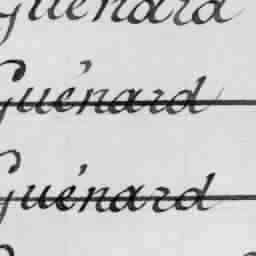 Guénard
Guénard
Guénard